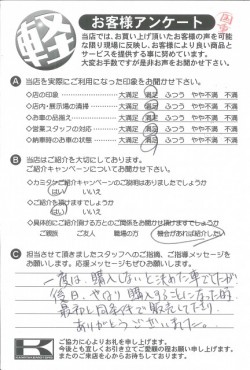 軽
お客様アンケート
当店では、お買い上げ頂いたお客様の声を可能
な限り現場に反映し、お客様により良い商品と
サービスを提供する事に努めています。
大変お手数ですが是非お声をお聞かせ下さい。
A 当店を実際にご利用になった印象をお聞かせ下さい。
◇店の印象 大満足 満足 ふつう やや不満 不満
◇店内・展示場の清掃 大満足 満足 ふつう やや不満 不満
◇お車の品揃え 大満足 満足 ふつう やや不満 不満
◇営業スタッフの対応 大満足 満足 ふつう やや不満 不満
◇納車時のお車の状態 大満足 満足 ふつう やや不満 不満
B 当店はご紹介を大切にしております。
ご紹介キャンペーンについてお聞かせ下さい。
◇カミタケご紹介キャンペーンのご説明はありましたでしょうか
はい いいえ
◇ご紹介はお願い頂けますでしょうか
はい いいえ
◇具体的にご紹介頂ける方とのご関係をお聞かせ頂けますでしょうか
ご親族 ご友人 職場の方 機会があれば紹介したい
C 担当させて頂きましたスタッフへのご指摘、ご指導メッセージを
お願いします。応援メッセージもぜひお願いします。
一度は、購入しないと決めた車でしたが
後日、やはり購入することになった時
最初と同条件で販売してくださり
ありがとうございました。
K
ご協力に心よりお礼を申し上げます。
今後とも宜しくお引き立てご愛顧の程お願い申し上げます。
またのご来店を心からお待ちしております。